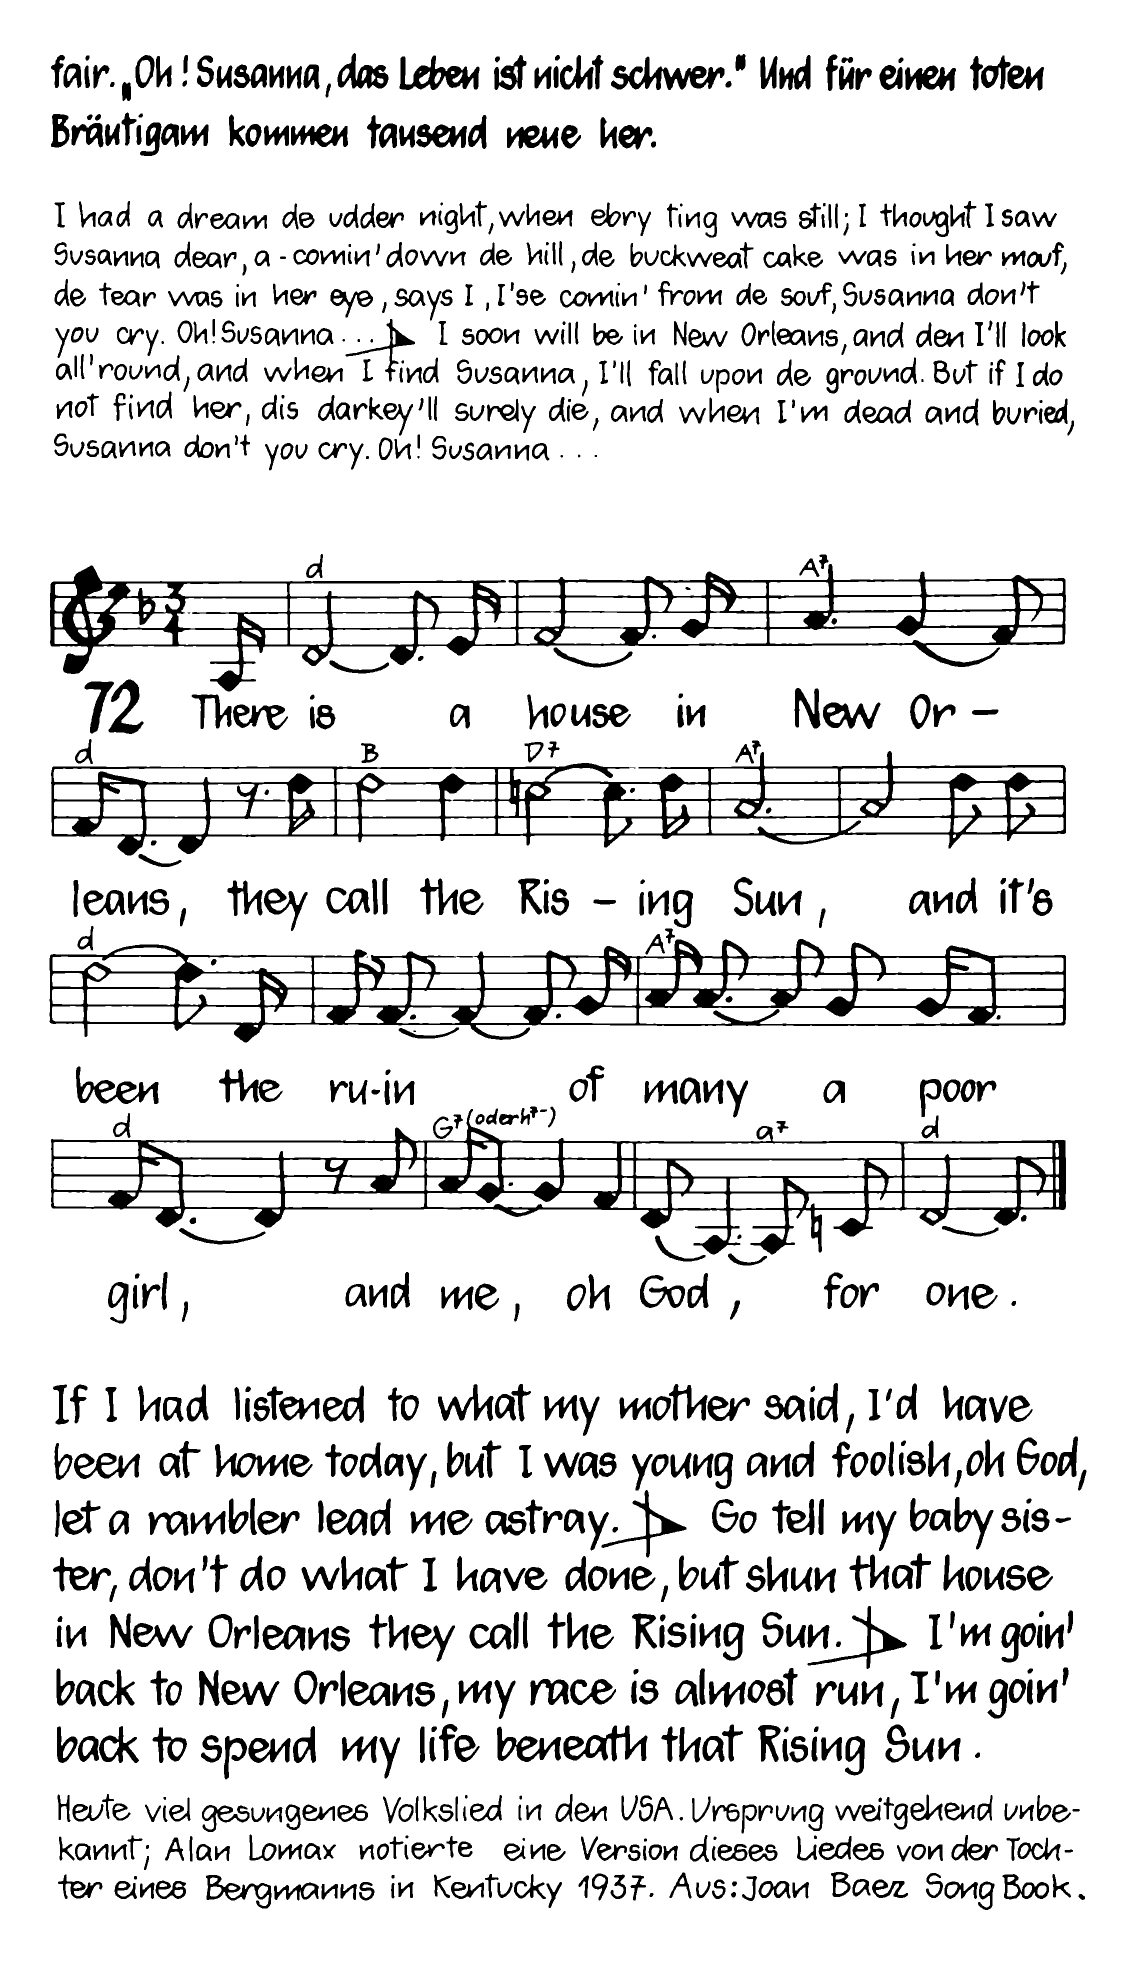 fair. „Oh! Susanna, das Leben ist nicht schwer." Und für einen toten
Bräutigam kommen tausend neue her.
I had a dream de udder night, when ebry ting was still; I thought I saw
Susanna dear, a-comin' down de hill, de buckweat cake was in her mouf,
de tear was in her eye, says I, I'se comin' from de souf, Susanna don't
you cry. Oh! Susanna... I soon will be in New Orleans, and den I'll look
all'round, and when I find Susanna, I'll fall upon de ground. But if I do
not find her, dis darkey'll surely die, and when I'm dead and buried,
Susanna don't you cry. Oh! Susanna...
d A7
3
4
72 There is a house in New Or-
d B D7 A7
leans, they call the Ris - ing Sun, and it's
d A7
been the ru-in of many a poor
d G7 (oder h7-) a7 d
girl, and me, oh God, for one.
If I had listened to what my mother said, I'd have
been at home today, but I was young and foolish, oh God,
let a rambler lead me astray. Go tell my baby sis-
ter, don't do what I have done, but shun that house
in New Orleans they call the Rising Sun. I'm goin'
back to New Orleans, my race is almost run, I'm goin'
back to spend my life beneath that Rising Sun.
Heute viel gesungenes Volkslied in den USA. Ursprung weitgehend unbe-
kannt; Alan Lomax notierte eine Version dieses Liedes von der Toch-
ter eines Bergmanns in Kentucky 1937. Aus: Joan Baez Song Book.